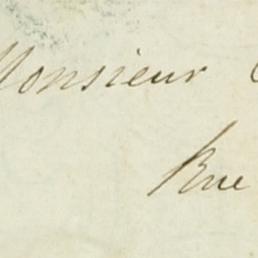 Monsieur
Rue